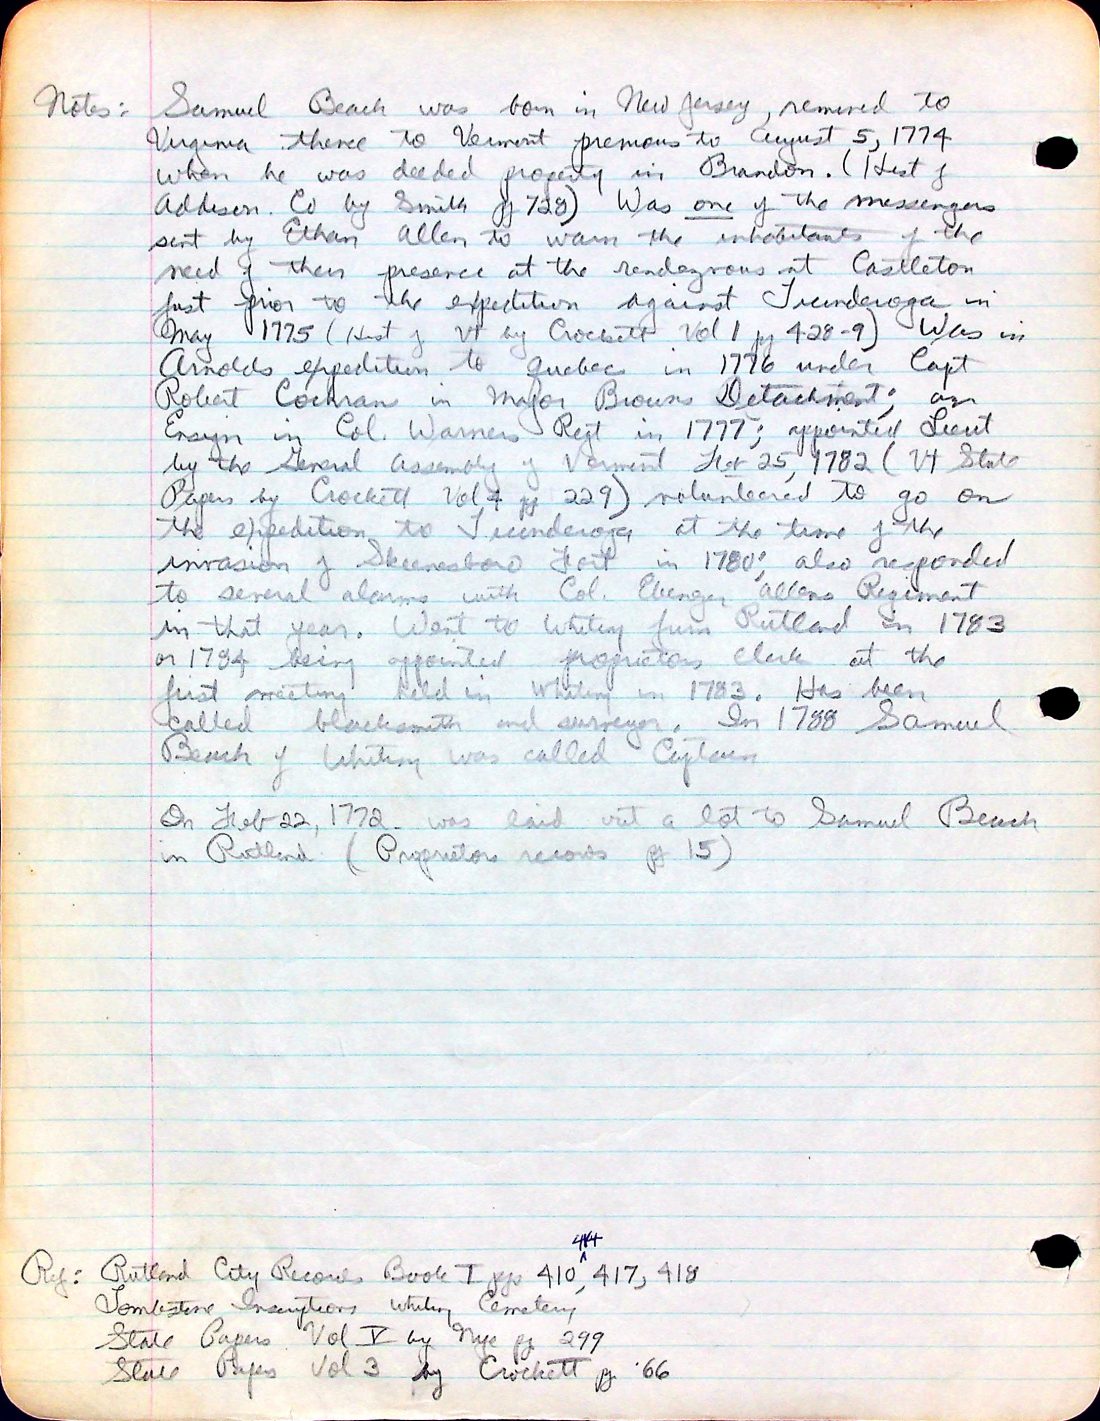 Notes: Samuel Beach was born in New Jersey, removed to
Virginia thence to Vermont previous to August 5, 1774
when he was deeded property in Brandon. (Hist of
Addison Co by Smith pg 728) Was one of the messengers
sent by Ethan Allen to warn the inhabitants of the
need of their presence at the rendezvous at Castleton
just prior to the expedition against Ticonderoga in
May 1775 (Hist of Vt by Crockett Vol 1 pg 428-9) Was in
Arnolds expedition to Quebec in 1776 under Capt
Robert Cochrans in Major Browns Detachment; an
Ensign in Col. Warners Regt in 1777; appointed Lieut
by the General Assembly of Vermont Feb 25, 1782 (Vt State
Papers by Crockett Vol 4 pg 229) volunteered to go on
the expedition to Ticonderoga at the time of the
invasion of Skeenesboro Fort in 1780; also responded
to several alarms with Col. Ebenezer Allens Regiment
in that year. Went to Whiting from Rutland in 1783
or 1784 being appointed proprietors clerk at the
first meeting held in Whiting in 1783. Has been
called blacksmith and surveyor. In 1788 Samuel
Beach of Whiting was called Captain
On Feb 22, 1772 was laid out a lot to Samuel Beach
in Rutland (Proprietors records pg 15)
414
Ref: Rutland City Records Book I pgs 410, 417, 418
Tombstone Inscriptions Whiting Cemetery
State Papers Vol V by Nye pg 299
State Papers Vol 3 by Crockett pg 66